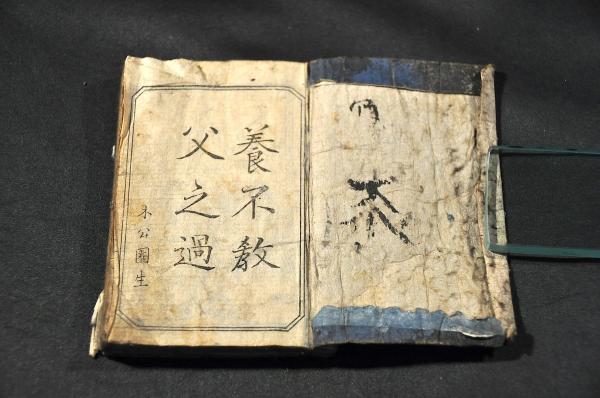 養不教
父之過
木公園生